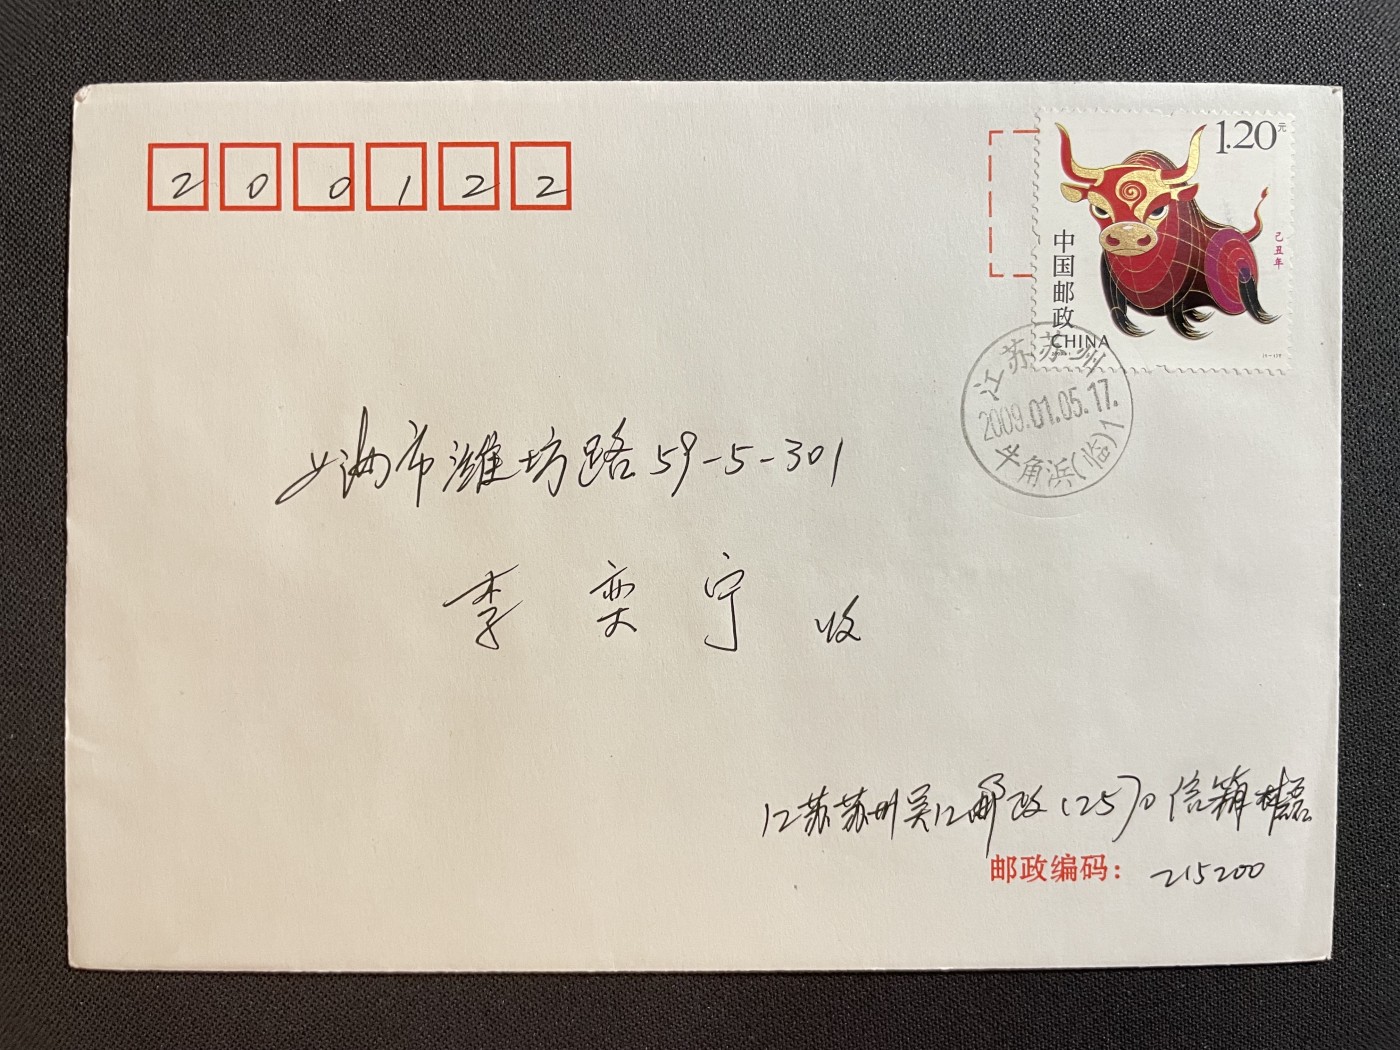 200122
1.20元
己丑年
中国邮政
CHINA
江苏苏州
2009.01.05.17.
牛角浜(临)1
上海市潍坊路59-5-301
李奕宁 收
江苏苏州吴江邮政(25)口信箱 林磊
邮政编码: 215200